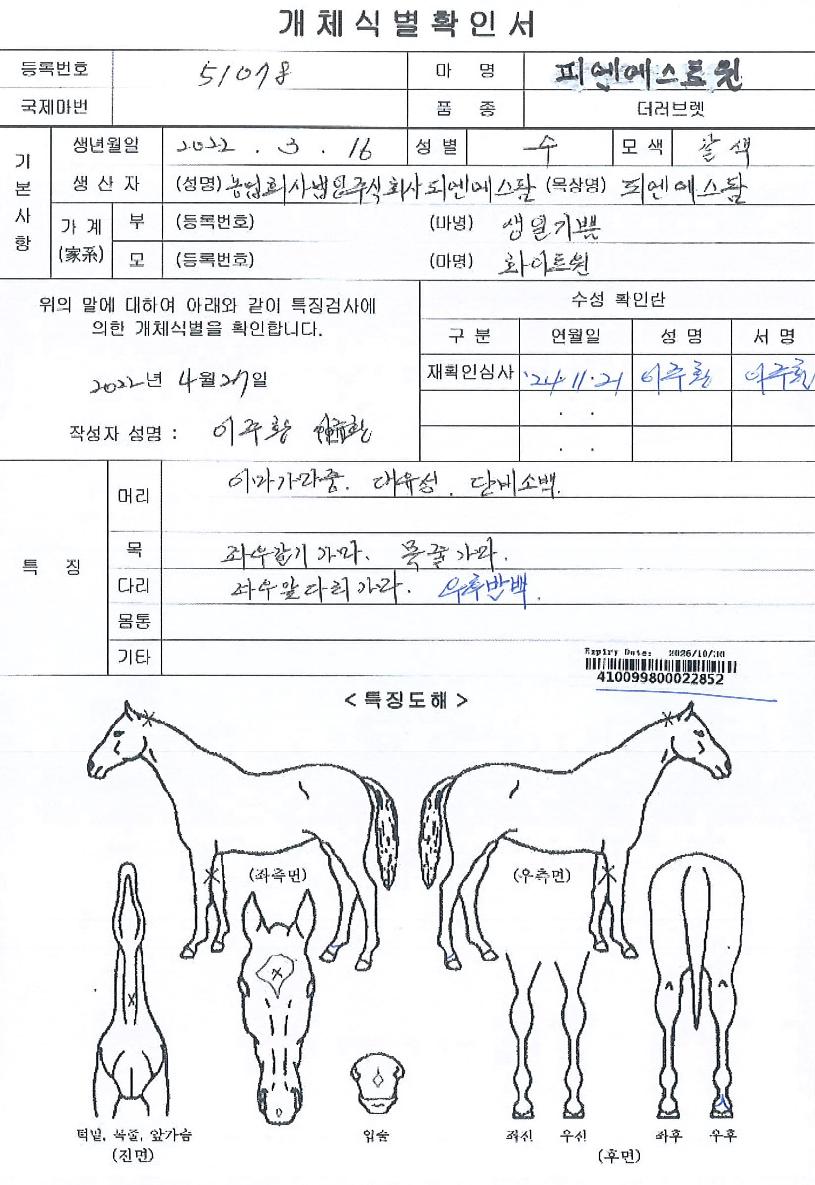 개체식별확인서
등록번호 51078 마 명 피엔에스트윈
국제마번 품 종 더러브렛
기본사항
생년월일 2022 . 3 . 16 성 별 수 모 색 갈색
생 산 자 (성명) 농업회사법인주식회사피엔에스팜 (목장명) 피엔에스팜
가 계 (家系) 부 (등록번호) (마명) 생일기쁨
모 (등록번호) (마명) 화이트윈
위의 말에 대하여 아래와 같이 특징검사에
의한 개체식별을 확인합니다.
2022년 4월 27일
작성자 성명 : 이주황
수성 확인란
구 분 연월일 성 명 서 명
재확인심사 '24.11.21 이주황 이주황
. .
. .
특 징
머리 이마가마중. 대유성. 단비소백.
목 좌우갈기가마. 목줄가마.
다리 좌우앞다리가마. 우후반백.
몸통
기타
Expiry Date: 2026/10/30
410099800022852
<특징도해>
(좌측면) (우측면)
턱밑, 목줄, 앞가슴
(전면)
입술
좌전 우전 좌후 우후
(후면)